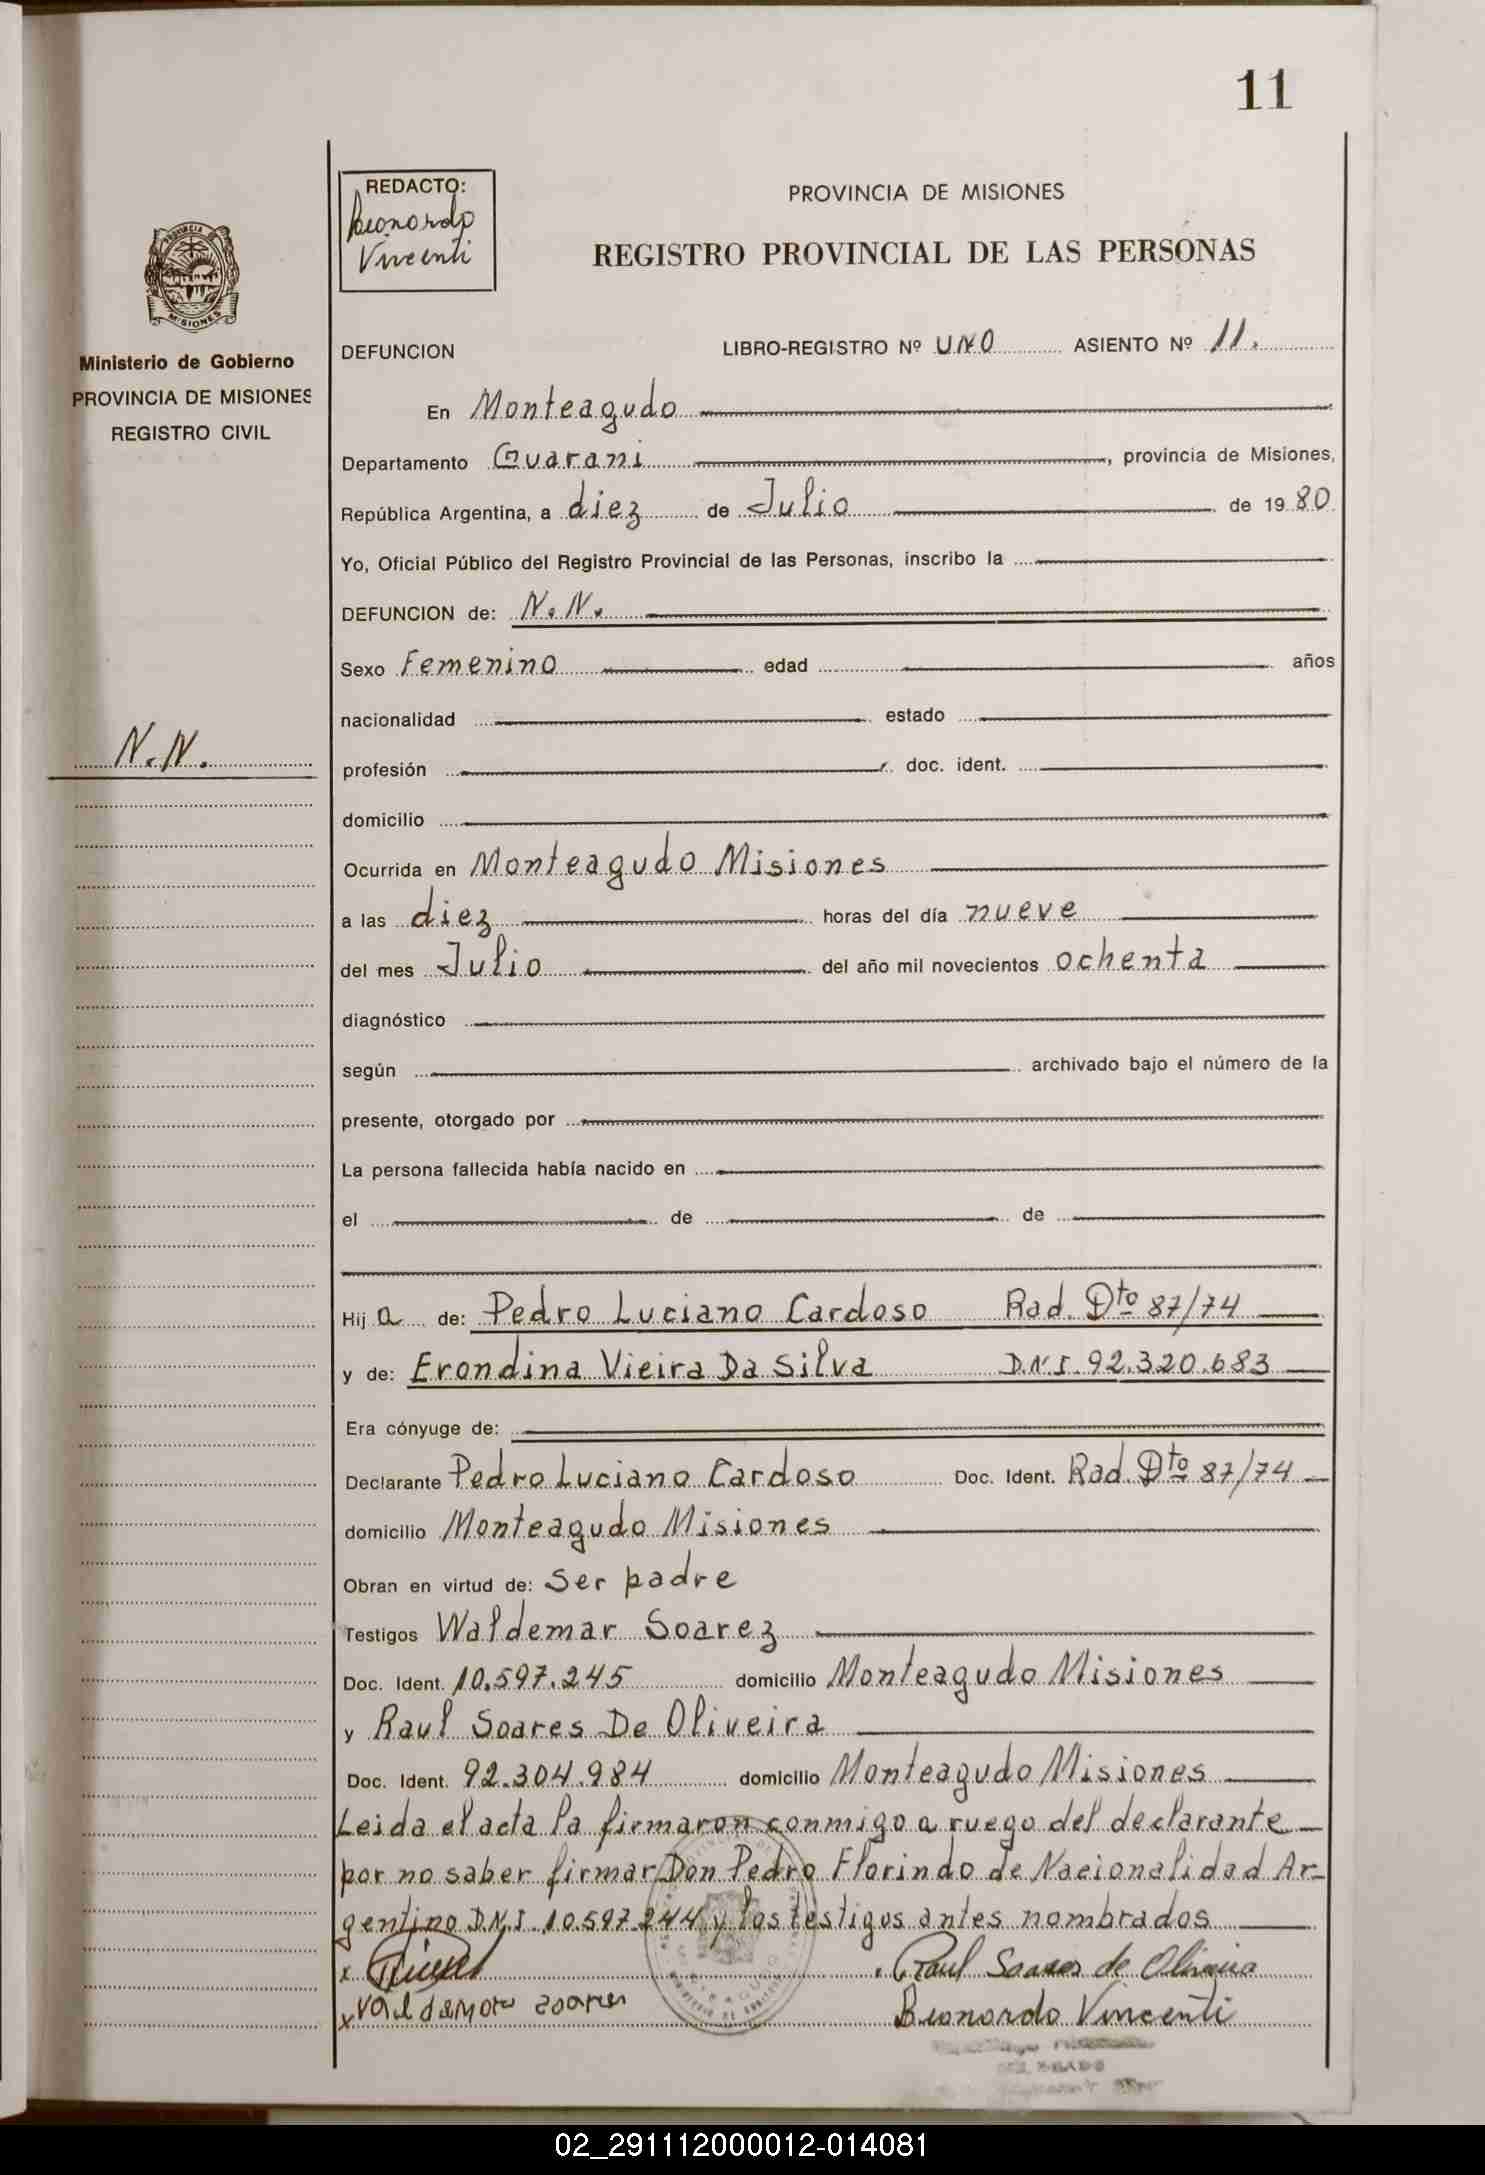 11
REDACTO:
Leonardo
Vincenti
PROVINCIA DE MISIONES
REGISTRO PROVINCIAL DE LAS PERSONAS
MISIONES
Ministerio de Gobierno
PROVINCIA DE MISIONES
REGISTRO CIVIL
DEFUNCION LIBRO-REGISTRO Nº UNO ASIENTO Nº 11.
En Monteagudo
Departamento Guarani, provincia de Misiones,
República Argentina, a diez de Julio de 1980
Yo, Oficial Público del Registro Provincial de las Personas, inscribo la
DEFUNCION de: N.N.
Sexo Femenino edad años
nacionalidad estado
N.N.
profesión doc. ident.
domicilio
Ocurrida en Monteagudo Misiones
a las diez horas del día nueve
del mes Julio del año mil novecientos ochenta
diagnóstico
según archivado bajo el número de la
presente, otorgado por
La persona fallecida había nacido en
el de de
Hija de: Pedro Luciano Cardoso Rad. Dto 87/74
y de: Erondina Vieira Da Silva D.N.I. 92.320.683
Era cónyuge de:
Declarante Pedro Luciano Cardoso Doc. Ident. Rad. Dto 87/74
domicilio Monteagudo Misiones
Obran en virtud de: Ser padre
Testigos Waldemar Soarez
Doc. Ident. 10.597.245 domicilio Monteagudo Misiones
y Raul Soares De Oliveira
Doc. Ident. 92.304.984 domicilio Monteagudo Misiones
Leida el acta la firmaron conmigo a ruego del declarante
por no saber firmar Don Pedro Florindo de Nacionalidad Ar-
gentino D.N.I. 10.597.244 y los testigos antes nombrados
x Raul Soares de Oliveira
x Valdemar soares Leonardo Vincenti
02_291112000012-014081